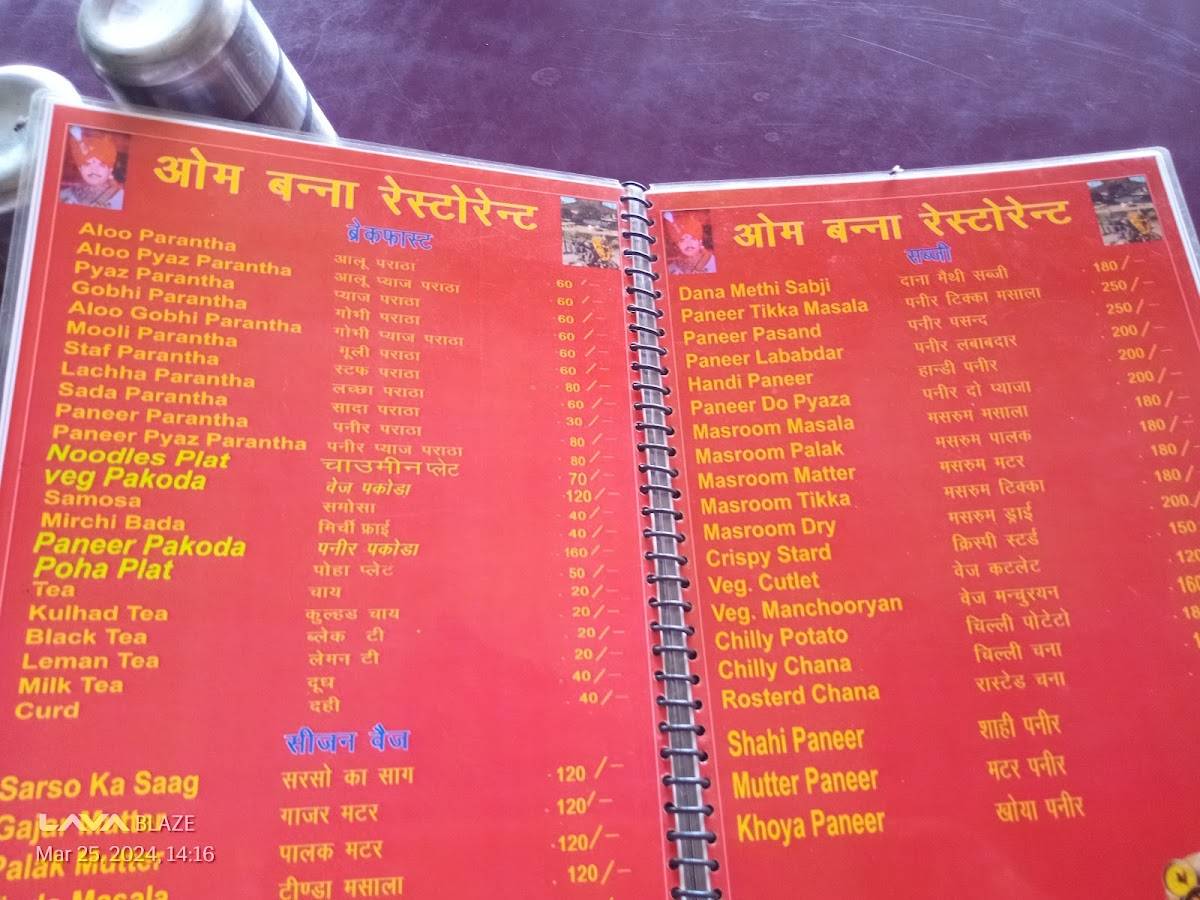 ओम बन्ना रेस्टोरेन्ट
ब्रेकफास्ट
Aloo Parantha आलू पराठा 60 /-
Aloo Pyaz Parantha आलू प्याज पराठा 60 /-
Pyaz Parantha प्याज पराठा 60 /-
Gobhi Parantha गोभी पराठा 60 /-
Aloo Gobhi Parantha गोभी प्याज पराठा 60 /-
Mooli Parantha गूली पराठा 60 /-
Staf Parantha स्टफ पराठा 80 /-
Lachha Parantha लच्छा पराठा 60 /-
Sada Parantha सादा पराठा 30 /-
Paneer Parantha पनीर पराठा 80 /-
Paneer Pyaz Parantha पनीर प्याज पराठा 80 /-
Noodles Plat चाउमीन प्लेट 70 /-
veg Pakoda वेज पकोडा 120 /-
Samosa समोसा 40 /-
Mirchi Bada मिर्ची फ्राई 40 /-
Paneer Pakoda पनीर पकोडा 160 /-
Poha Plat पोहा प्लेट 50 /-
Tea चाय 20 /-
Kulhad Tea कुल्हड चाय 20 /-
Black Tea ब्लेक टी 20 /-
Leman Tea लेमन टी 20 /-
Milk Tea दूध 40 /-
Curd दही 40 /-
सीजन वैज
Sarso Ka Saag सरसो का साग 120 /-
Gajar Mutter गाजर मटर 120/-
Palak Mutter पालक मटर 120/-
Masala टीण्डा मसाला 120/-
ओम बन्ना रेस्टोरेन्ट
सब्जी
Dana Methi Sabji दाना मैथी सब्जी 180 /-
Paneer Tikka Masala पनीर टिक्का मसाला 250 /-
Paneer Pasand पनीर पसन्द 250 /-
Paneer Lababdar पनीर लबाबदार 200 /-
Handi Paneer हान्डी पनीर 200 /-
Paneer Do Pyaza पनीर दो प्याजा 200 /-
Masroom Masala मसरुमं मसाला 180 /-
Masroom Palak मसरुम पालक 180 /-
Masroom Matter मसरुम मटर 180 /-
Masroom Tikka मसरुम टिक्का 180 /-
Masroom Dry मसरुम ड्राई 200
Crispy Stard क्रिस्पी स्टर्ड 150
Veg. Cutlet वेज कटलेट 120
Veg. Manchooryan वेज मन्चुरयन 160
Chilly Potato चिल्ली पोटेटो
Chilly Chana चिल्ली चना
Rosterd Chana रास्टेड चना
Shahi Paneer शाही पनीर
Mutter Paneer मटर पनीर
Khoya Paneer खोया पनीर
LAVA BLAZE
Mar 25, 2024, 14:16